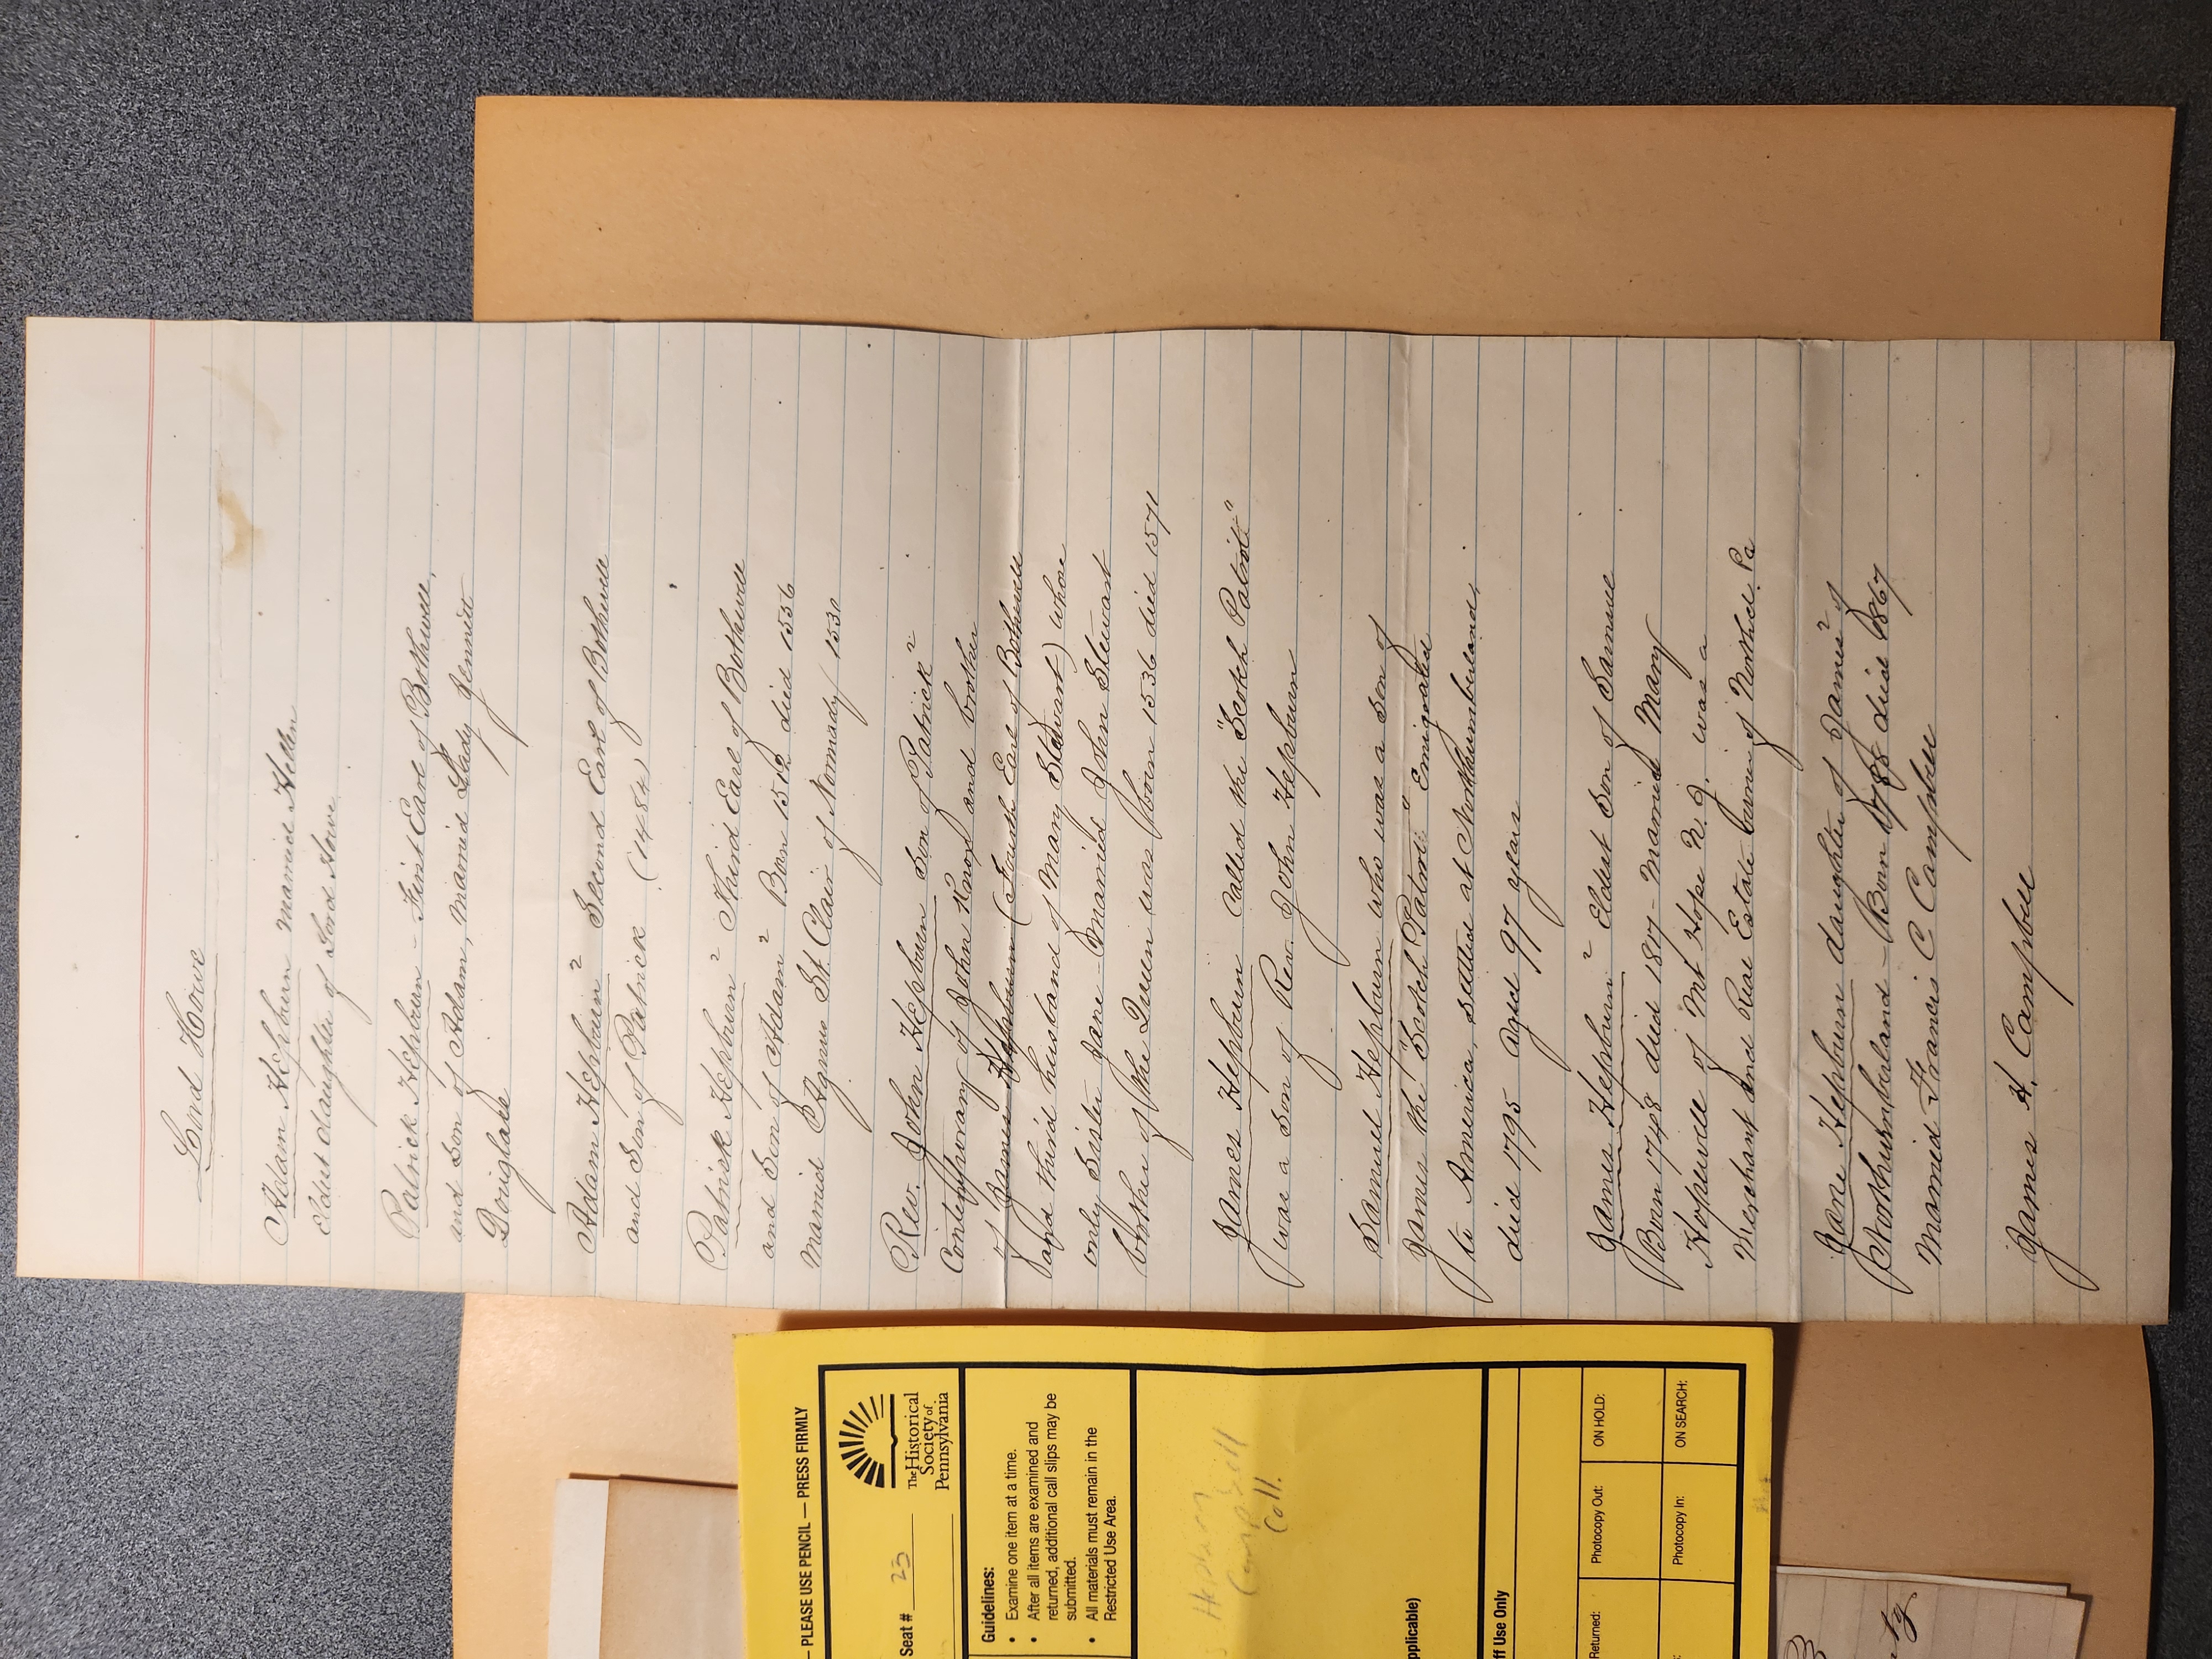 Lord Howe
Adam Hepburn married Hellen
Eldest daughter of Lord Howe
Patrick Hepburn – First Earl of Bothwell,
and Son of Adam, married Lady Jennett
Douglase
Adam Hepburn 2 Second Earl of Bothwell
and Son of Patrick (1484)
Patrick Hepburn 2 Third Earl of Bothwell
and Son of Adam 2 Born 1512 died 1556
married Agnus St. Clair of Normady 1530
Rev. John Hepburn Son of Patrick 2
Contemporary of John Knox and brother
of James Hepburn (Fourth Earl of Bothwell
and third husband of Mary Stewart) whose
only Sister Jane – Married John Stewart
brother of the Queen was born 1536 died 1571
James Hepburn called the "Scotch Patriot"
was a Son of Rev. John Hepburn
Samuel Hepburn who was a Son of
James the "Scotch Patriot" Emigrated
to America, settled at Northumberland,
died 1795 Aged 97 years
James Hepburn 2 Eldest Son of Samuel
Born 1748 died 1817 – Married Mary
Hopewell of Mt Hope N. J. was a
Merchant and Real Estate owner of Northd. Pa
Jane Hepburn daughter of James 2 of
Northumberland – Born 1788 died 1867
Married Francis C Campbell
James H. Campbell
— PLEASE USE PENCIL — PRESS FIRMLY
Seat # 23
The Historical
Society of
Pennsylvania
Guidelines:
• Examine one item at a time.
• After all items are examined and
returned, additional call slips may be
submitted.
• All materials must remain in the
Restricted Use Area.
Hepburn
Campbell
Coll.
pplicable)
ff Use Only
Returned:
Photocopy Out:
ON HOLD:
Photocopy In:
ON SEARCH: